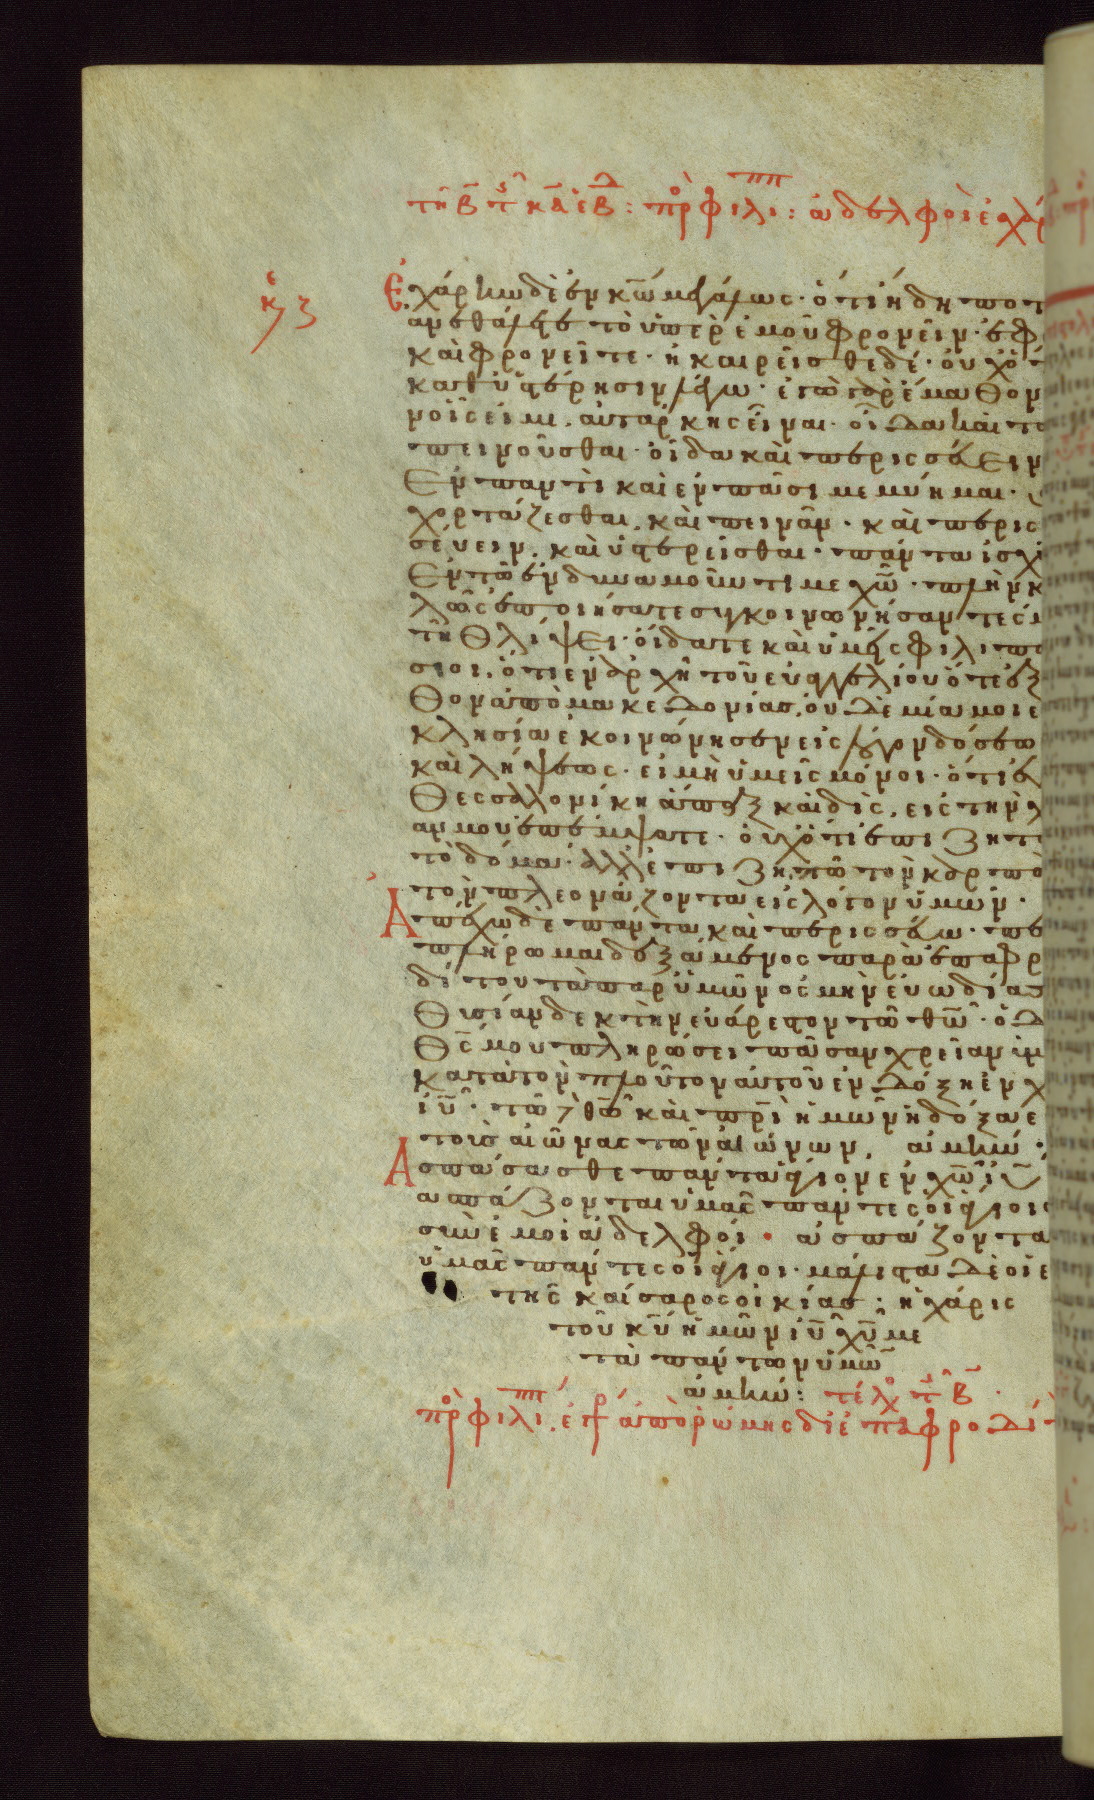 πρ φιλιπ : ἀδελφοὶ ἐχάρ
Ἐχάρην δὲ ἐν κω μεγάλως · ὅτι ἤδη ποτ
ανεθάλετε τὸ ὑπὲρ ἐμοῦ φρονεῖν · ἐφ
καὶ ἐφρονεῖτε · ἠκαιρεῖσθε δέ · οὐχ ὅτ
καθ ὑστέρησιν λέγω · ἐγὼ γὰρ ἔμαθον
νοῖς εἰμι · αὐτάρκης εἶναι · οἶδα καὶ τα
πεινοῦσθαι · οἶδα καὶ περισσεύειν
Ἐν παντὶ καὶ ἐν πᾶσι μεμύημαι ·
χορτάζεσθαι, καὶ πεινᾶν · καὶ περισ
σεύειν, καὶ ὑστερεῖσθαι · πάντα ἰσχύ
Ἐν τῷ ἐνδυναμοῦντι με χω · πλὴν κ
λῶς ἐποιήσατε συγκοινωνήσαντες
τῇ θλίψει · οἴδατε καὶ ὑμεῖς φιλιππ
σιοι, ὅτι ἐν ἀρχῇ τοῦ εὐαγγελίου ὅτε ἐξ
θον ἀπὸ μακεδονίας, οὐδὲ μία μοι ἐ
κλησία ἐκοινώνησεν εἰς λόγον δόσεω
καὶ λήψεως · εἰ μὴ ὑμεῖς μόνοι · ὅτι ἐ
Θεσσαλονίκη ἅπαξ καὶ δὶς, εἰς τὴν χ
αν μου ἐπέμψατε · οὐχ ὅτι ἐπιζητ
τὸ δόμα · ἀλλ ἐπιζητῶ τὸν καρπὸ
τὸν πλεονάζοντα εἰς λόγον ὑμῶν ·
Ἀπέχω δὲ πάντα καὶ περισσεύω · πε
πλήρωμαι δεξάμενος παρὰ ἐπαφρ
δίτου τὰ παρ ὑμῶν ὀσμὴν εὐωδίας
Θυσίαν δεκτὴν εὐάρεστον τῷ θω · ὁ δ
Θς μου πληρώσει πᾶσαν χρείαν ὑμ
κατὰ τὸν πλοῦτον αὐτοῦ ἐν δόξῃ ἐν χ
ιυ · τῷ δὲ θω καὶ πρι ἡμῶν ἡ δόξα ε
τοὺς αἰῶνας τῶν αἰώνων, ἀμήν :
Ἀσπάσασθε πάντα ἅγιον ἐν χω ιυ
ασπάζονται ὑμᾶς πάντες οἱ ἅγιοι
σὺν ἐμοὶ ἀδελφοί · ἀσπάζοντα
ὑμᾶς πάντες οἱ ἅγιοι · μάλιστα δὲ οἱ ἐ
τῆς καίσαρος οἰκίας : ἡ χάρις
τοῦ κυ ἡμῶν ιυ χυ με
τὰ πάντων ὑμῶ
ἀμήν : τέλ
πρ φιλιπ. ἐγρ ἀπὸ ρώμης δι ἐπαφροδί